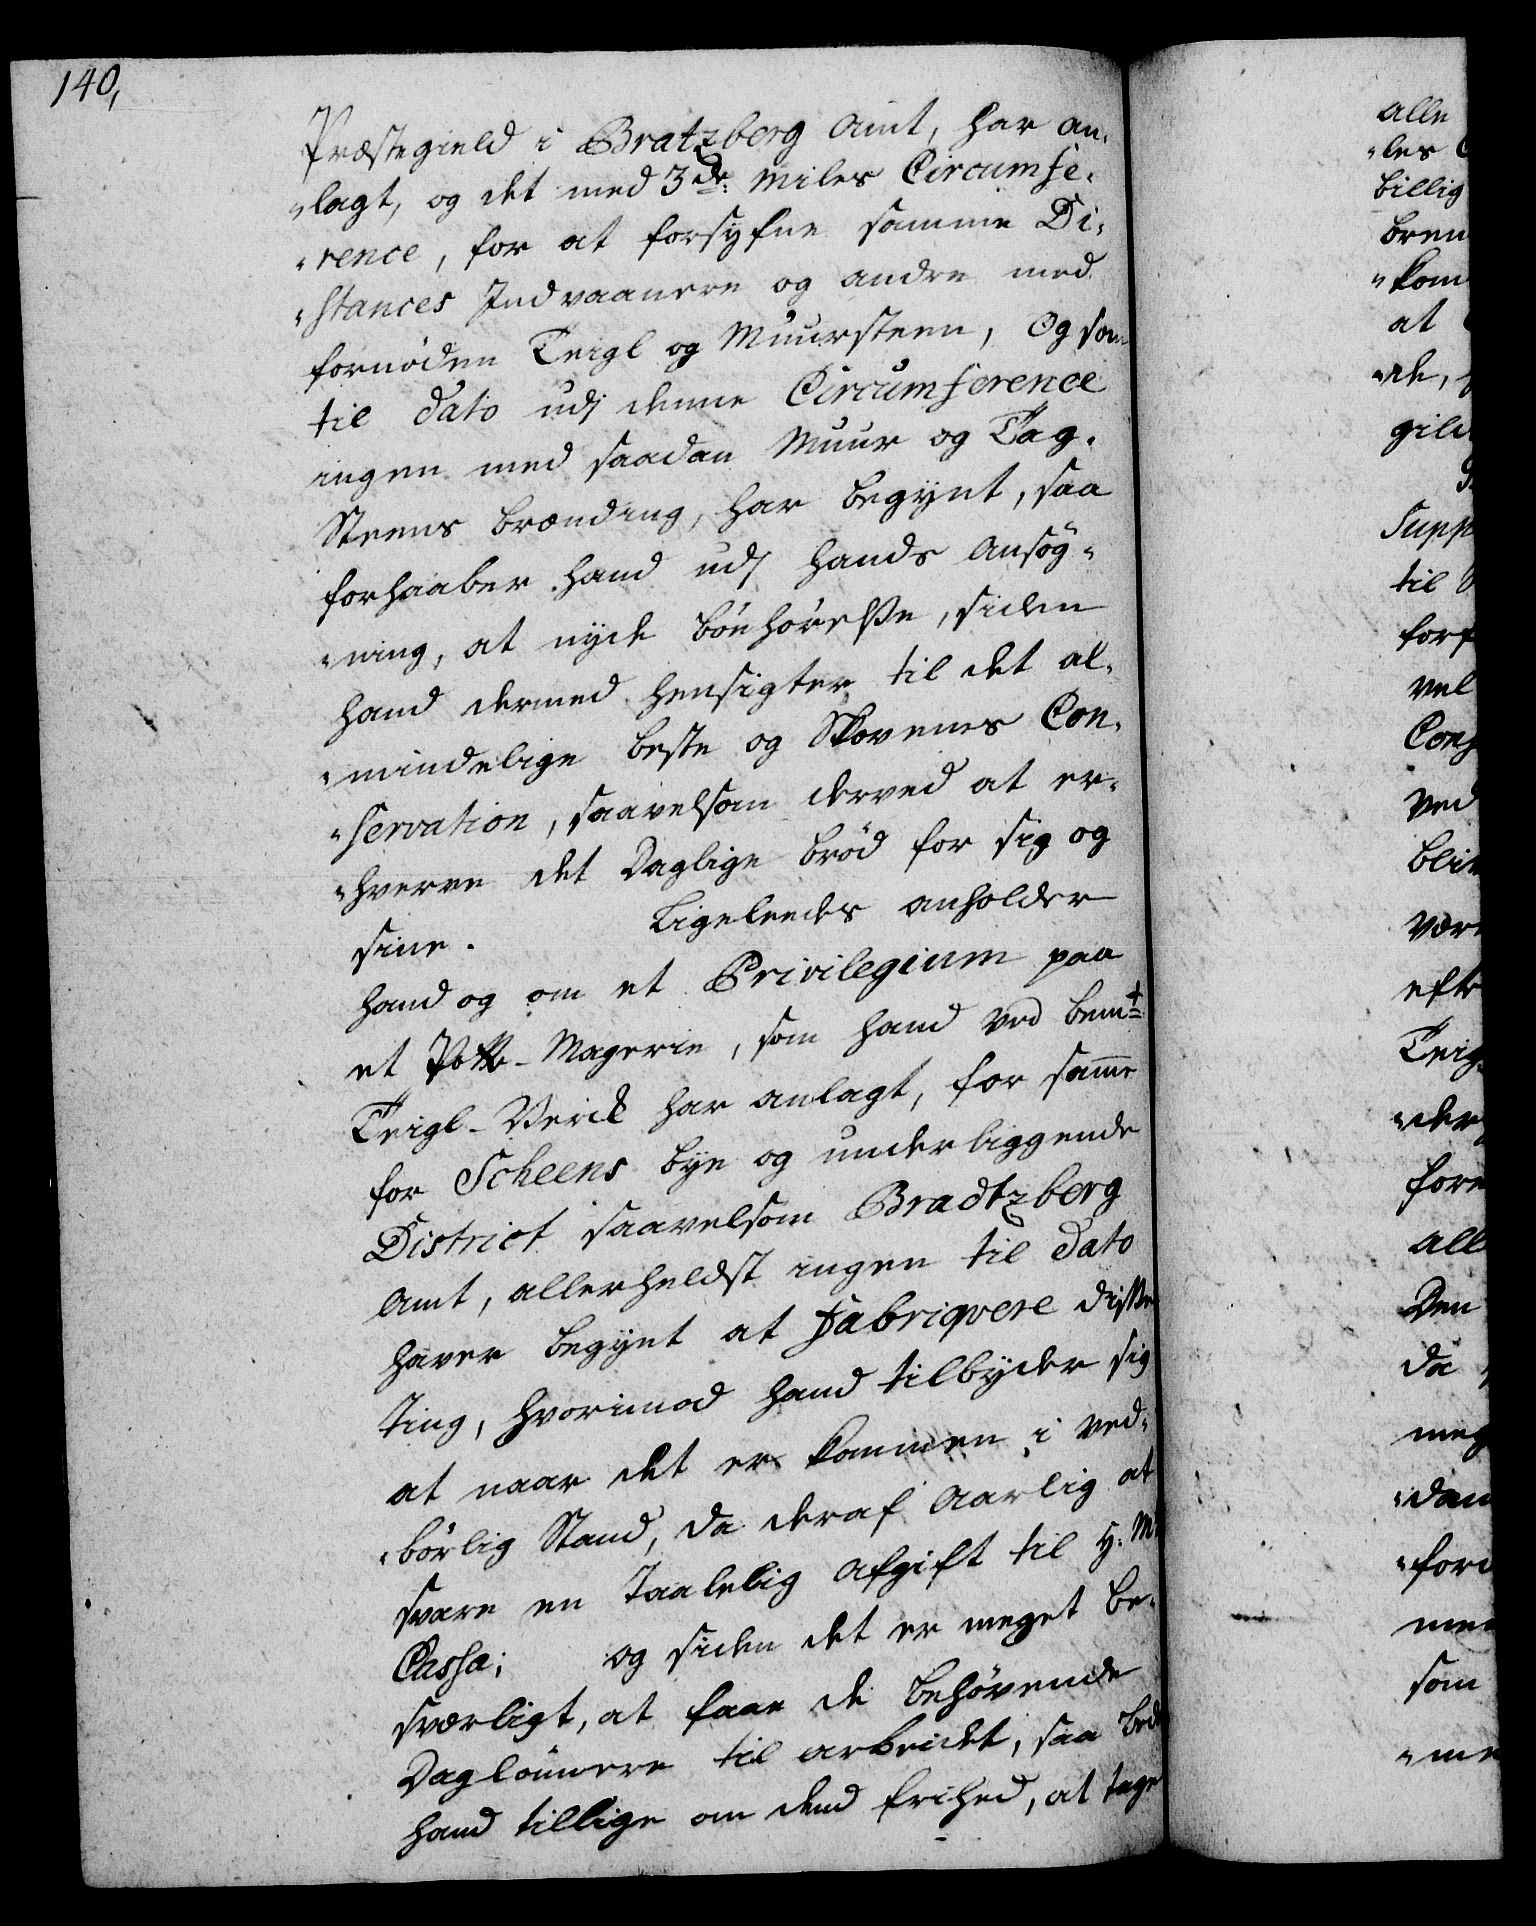 140,
Præstegield i Bratzberg Amt, har an,
"lagt, og det med 3de: Miles Circumfe,
"rence, for at forsyfne samme Di,
"stances Indvaanere og andre med
fornøden Teigl og Muursteen, Og som
til Dato udj denne Circumference
ingen med saadan Muur og Tag,
Steens brænding, har begynt, saa
forhaaber hand udj hands Ansøg"
"ning, at nyde bönhörelße, siden
hand dermed hensigter til det al,
"mindelige beste og Skovenes Con,
"servation, saavelsom derved at er,
"hverve det Daglige brød for sig og
sine. Ligeleedes anholder
hand og om et Privilegium paa
et Potte-Magerie, som hand ved bemt
Teigl-Verck har anlagt, for samme
for Scheens bye og underliggende
District saavelsom Bradtzberg
Amt, allerheldst ingen til Dato
haver begynt at Fabriqvere disse
Ting, hvorimod hand tilbyder sig
at naar det er kommen i ved,
"börlig Stand, da deraf Aarlig at
svare en Taalelig Afgift til H: M
Cassa; og siden det er meget be,
sværligt, at faae de behövende
Daglönnere til arbeidet, saa bed
hand tillige om dend frihed, at tage
alle
"les
billig
bren
"kom
at
"de,
gild
Supp
til
forf
vel
Cons
ved
bliv
være
efte
Teig
"der
fore
all
Den
da
meg
"dan
"for
men
som
"me